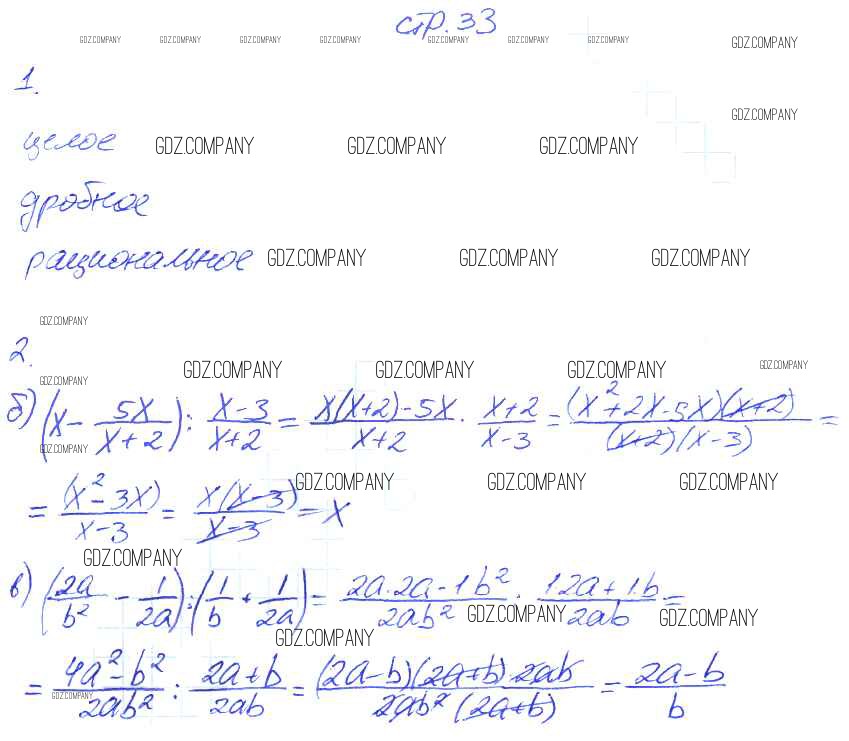 стр. 33
GDZ.COMPANY GDZ.COMPANY GDZ.COMPANY GDZ.COMPANY GDZ.COMPANY GDZ.COMPANY GDZ.COMPANY GDZ.COMPANY
1.
GDZ.COMPANY
целое GDZ.COMPANY GDZ.COMPANY GDZ.COMPANY
дробное
рациональное GDZ.COMPANY GDZ.COMPANY GDZ.COMPANY
GDZ.COMPANY
2.
GDZ.COMPANY GDZ.COMPANY GDZ.COMPANY GDZ.COMPANY
GDZ.COMPANY
б) (x - 5x/(x+2)) : (x-3)/(x+2) = (x(x+2)-5x)/(x+2) · (x+2)/(x-3) = ((x²+2x-5x)(x+2))/((x+2)(x-3)) =
GDZ.COMPANY
GDZ.COMPANY GDZ.COMPANY GDZ.COMPANY
= (x²-3x)/(x-3) = x(x-3)/(x-3) = x
GDZ.COMPANY
в) (2a/b² - 1/2a) : (1/b + 1/2a) = (2a·2a-1b²)/2ab² · (12a+1·b)/2ab =
GDZ.COMPANY GDZ.COMPANY
GDZ.COMPANY
= (4a²-b²)/2ab² : (2a+b)/2ab = ((2a-b)(2a+b)2ab)/(2ab²(2a+b)) = (2a-b)/b
GDZ.COMPANY